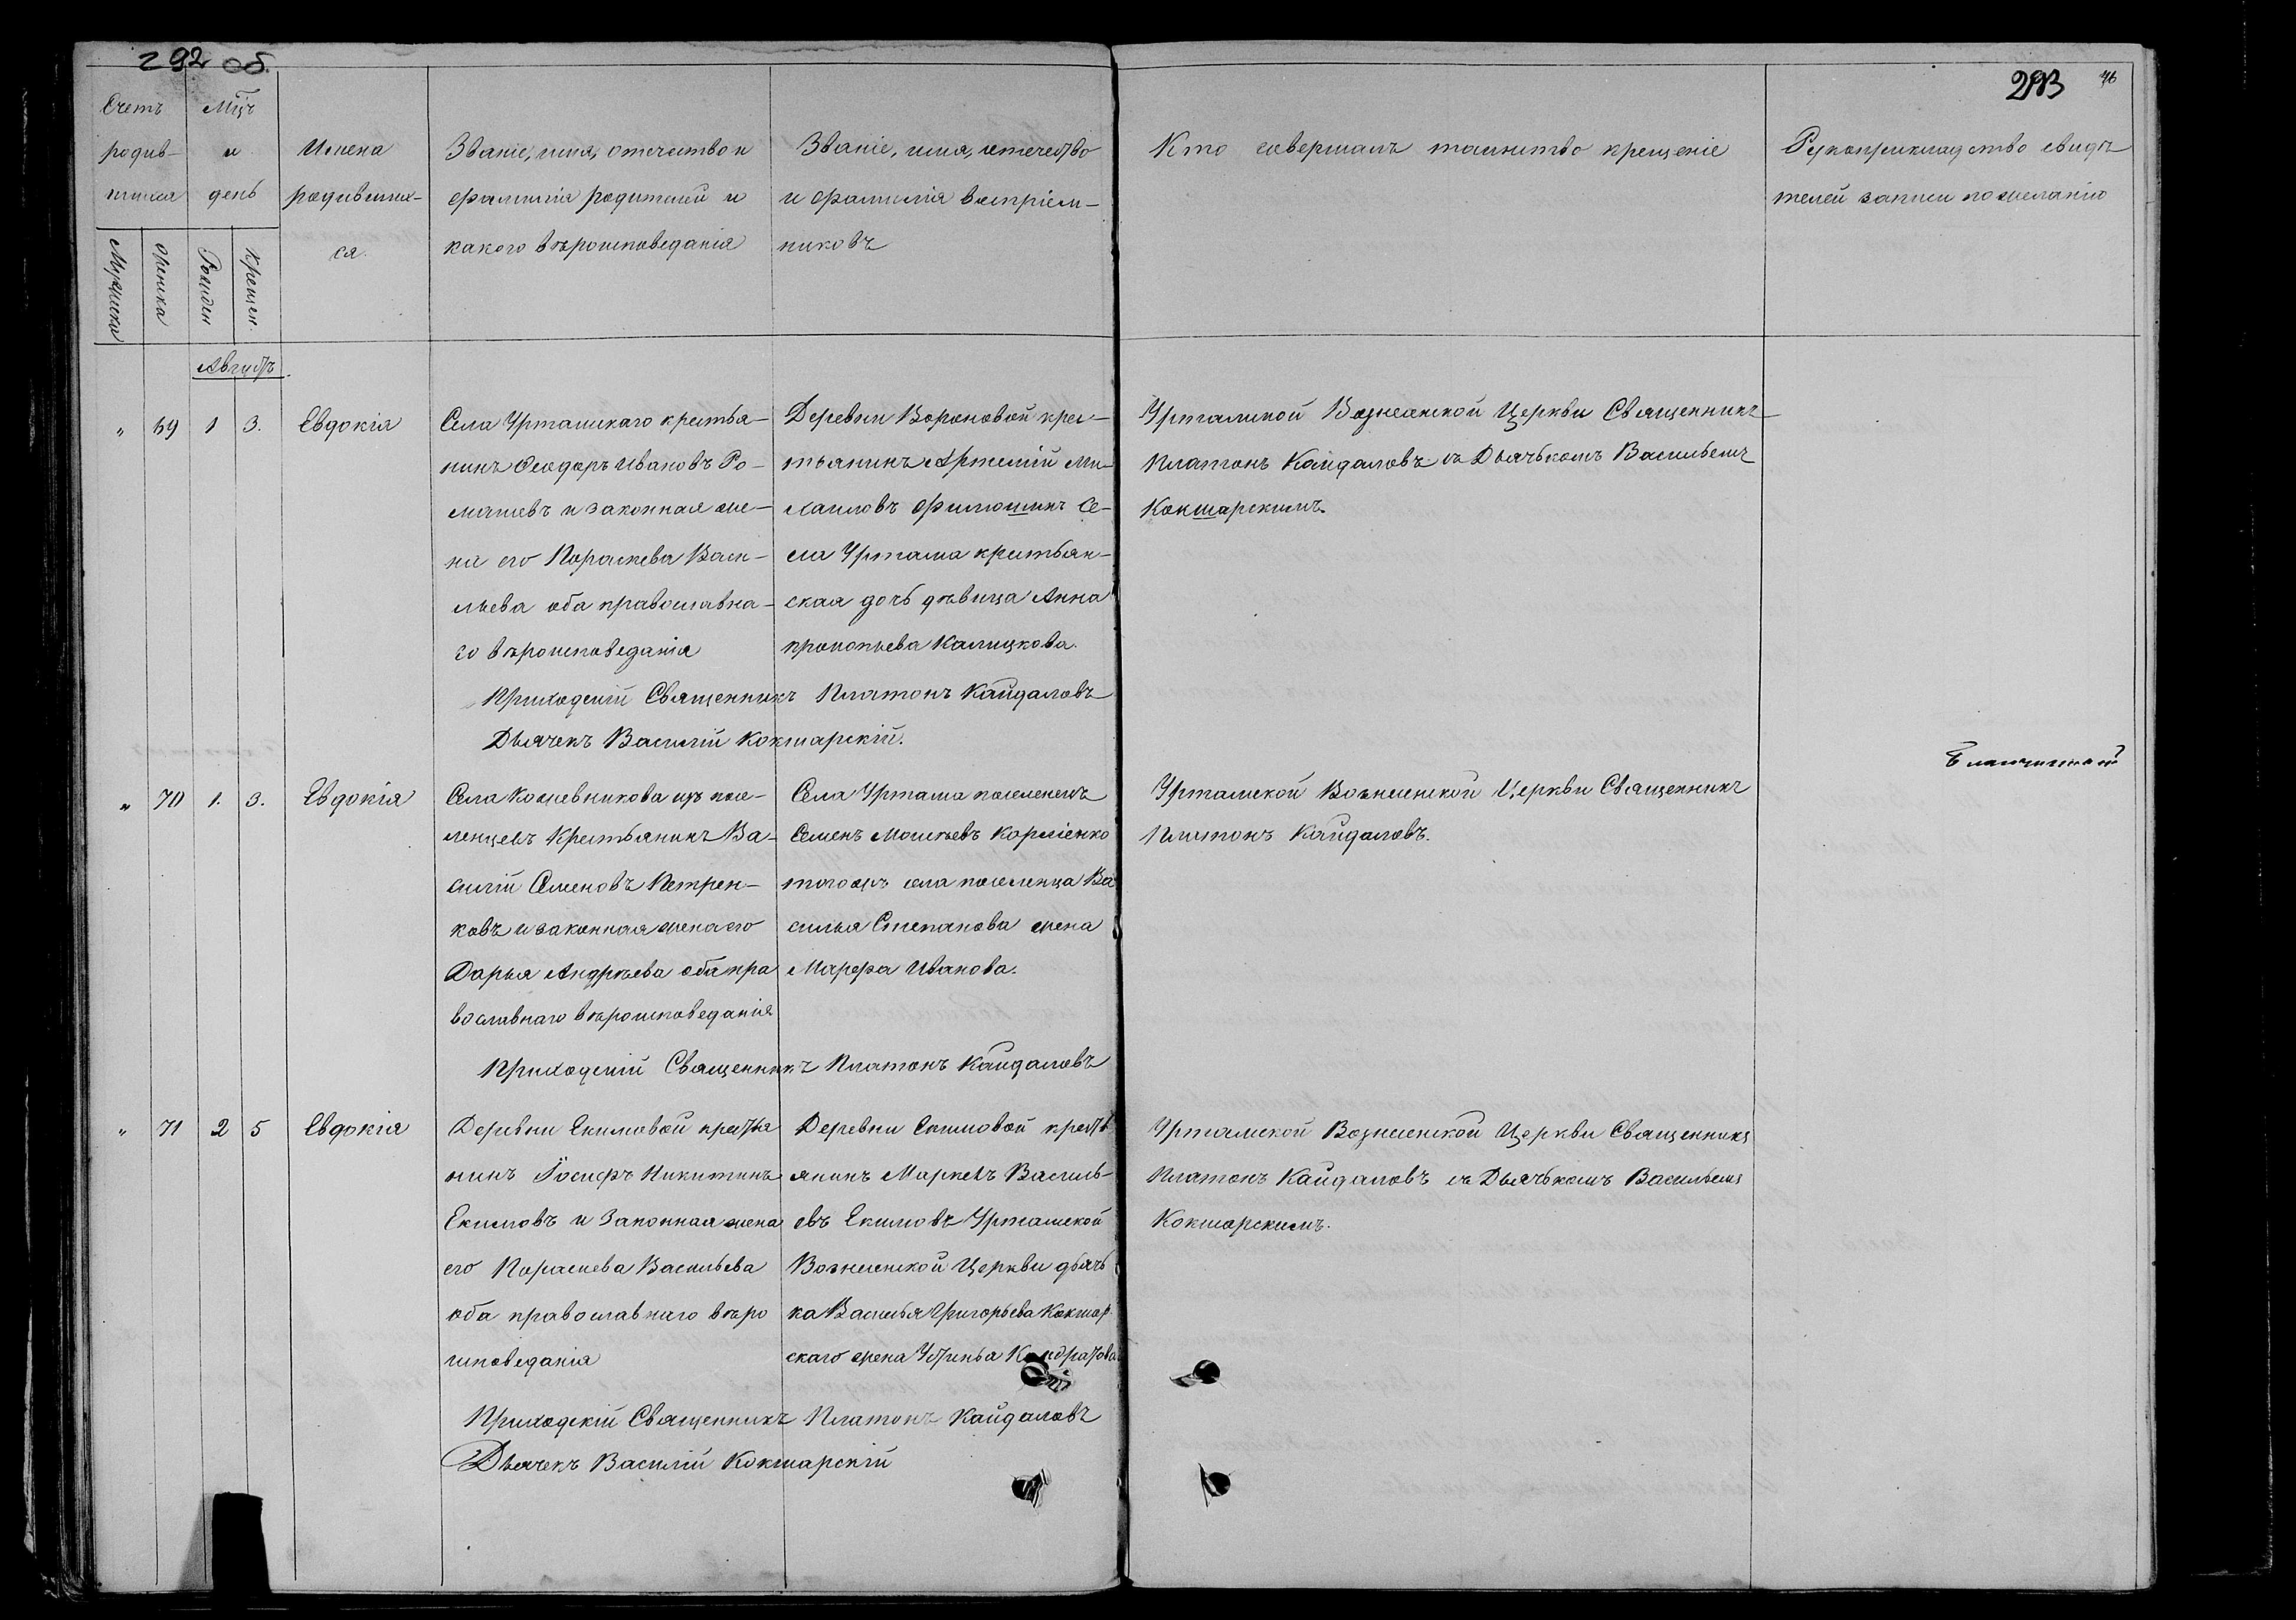 292 об.
293
Счетъ
родив-
шихся
Мужеска
Женска
Мцъ
и
день
Рожден
Крещен.
Имена
родивших-
ся.
Званіе, имя, отечество и
фамилія родителей и
какого вѣроисповеданія
Званіе, имя, отечество
и фамилія воспріем-
никовъ
Кто совершалъ таинство крещеніе
Рукоприкладство свидѣ
телей записи по желанію
Августъ.
„ 69 1 3. Евдокія
Села Уртамскаго крестья-
нинъ Ѳеодоръ Ивановъ Ро-
машевъ и законная же-
на его Параскева Васи-
льева оба православна-
го вѣроисповеданія
Деревни Вороновой крес-
тьянинъ Артемій Ми-
хаиловъ Филюшинъ Се-
ла Уртама крестьян-
ская дочь дѣвица Анна
прокопьева Калицкова.
Уртамской Вознесенской Церкви Священникъ
Платонъ Кайдаловъ съ Дьячькомъ Васильемъ
Кокшарскимъ.
Приходскій Священникъ Платонъ Кайдаловъ
Дьячекъ Василій Кокшарскій.
„ 70 1. 3. Евдокія
Села Кожевникова изъ посе-
ленцевъ Крестьянинъ Ва-
силій Семеновъ Петрен-
ковъ и законная жена его
Дарья Андрѣева оба пра
вославнаго вѣроисповеданія
Села Уртама поселенецъ
Семенъ Моисѣевъ Корніенко
тогожъ села поселенца Ва
силья Степанова жена
Марфа Иванова.
Уртамской Вознесенской Церкви Священникъ
Платонъ Кайдаловъ.
Приходскій Священникъ Платонъ Кайдаловъ
„ 71 2 5 Евдокія
Деревни Екимовой крестья
нинъ Іосифъ Никитинъ
Екимовъ и Законная жена
его Параскева Васильева
оба православнаго вѣро
исповеданія
Деревни Екимовой кресть
янинъ Маркелъ Василь-
евъ Екимовъ Уртамской
Вознесенской Церкви дьячь
ка Василья Григорьева Кокшар
скаго жена Устинья Кондратова
Уртамской Вознесенской Церкви Священникъ
Платонъ Кайдаловъ съ Дьячькомъ Васильемъ
Кокшарскимъ.
Приходскій Священникъ Платонъ Кайдаловъ
Дьячекъ Василій Кокшарскій